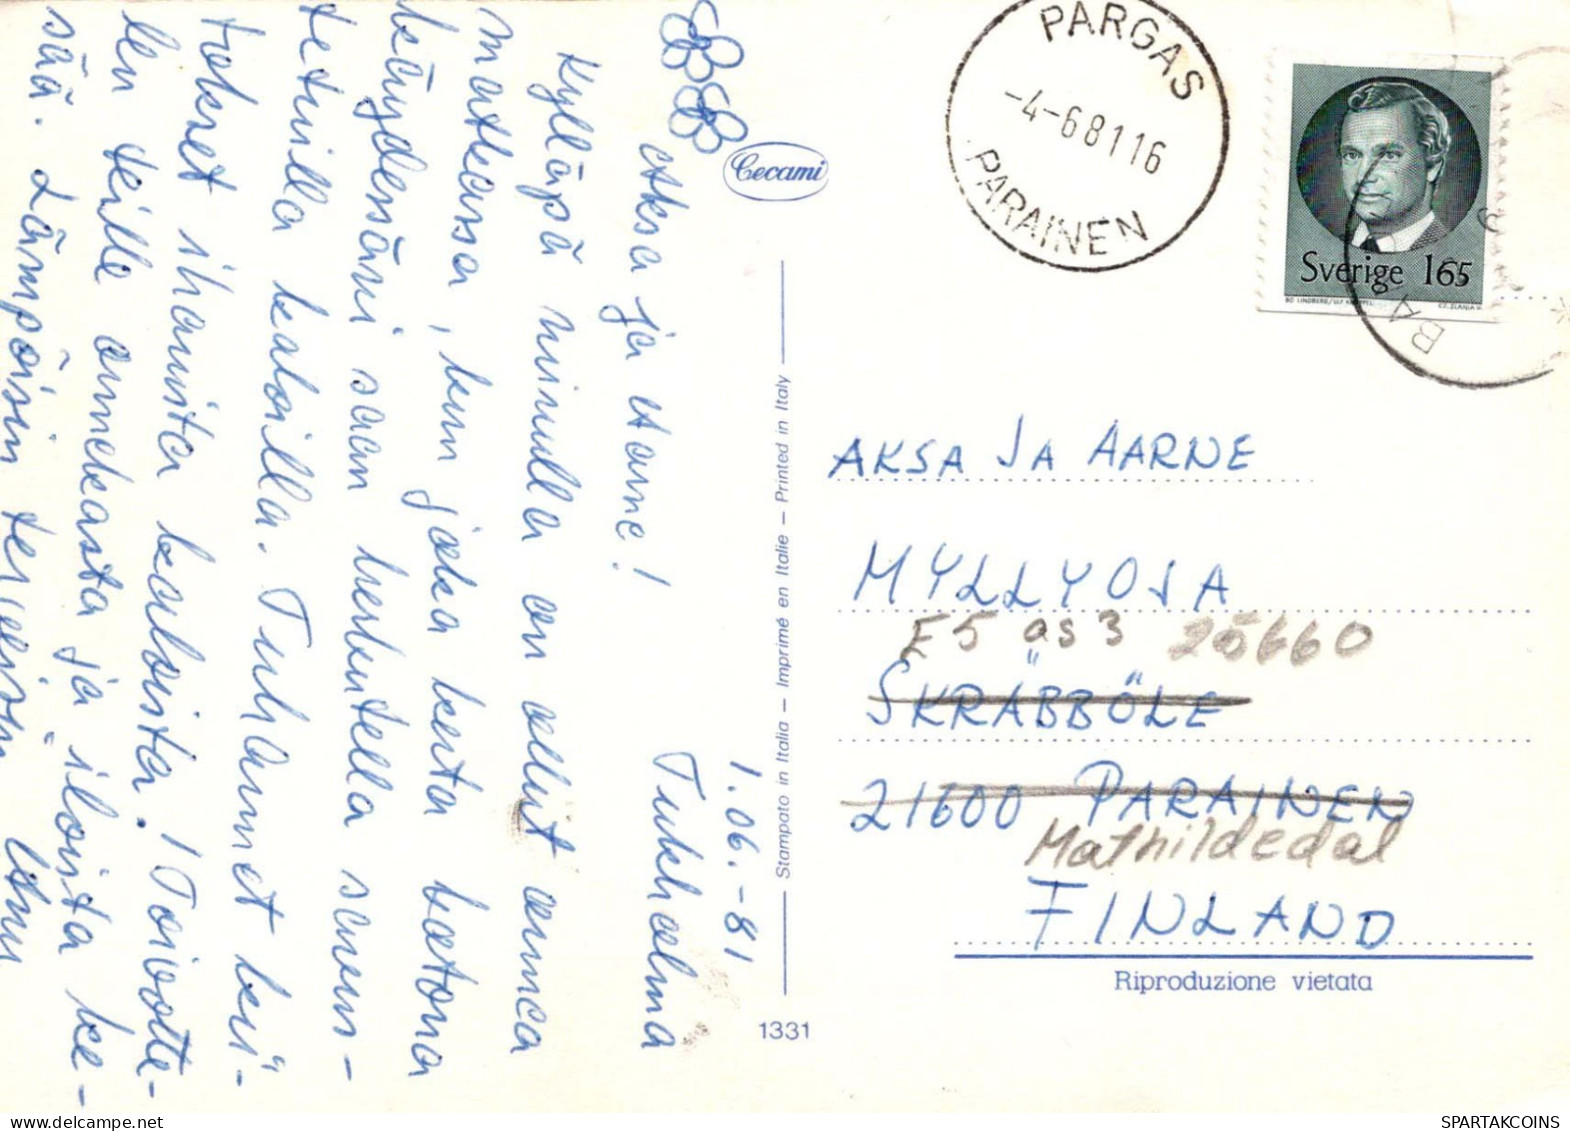 1.06.-81
Tukholma
Aksa ja Aarne!
Kylläpä minulla on ollut onnea
matkassa, kun joka kerta kotona
käydessäni saan herkutella sinun-
tetuilla kaloilla. Tuhannet kii-
tokset ihanista kaloista! Toivotte-
len teille onnekasta ja iloista ke-
sää. Lämpöisin terveisin
Cecami
Stampato in Italia – Imprimé en Italie – Printed in Italy
1331
PARGAS
-4-6 81 16
PARAINEN
Sverige 165
BO LINDBERG/ULF
CZ.SLANIA
BA
AKSA JA AARNE
MYLLYOJA
E5 as 3 25660
SKRÄBBÖLE
21600 PARAINEN
Mathildedal
FINLAND
Riproduzione vietata
SPARTAKCOINS